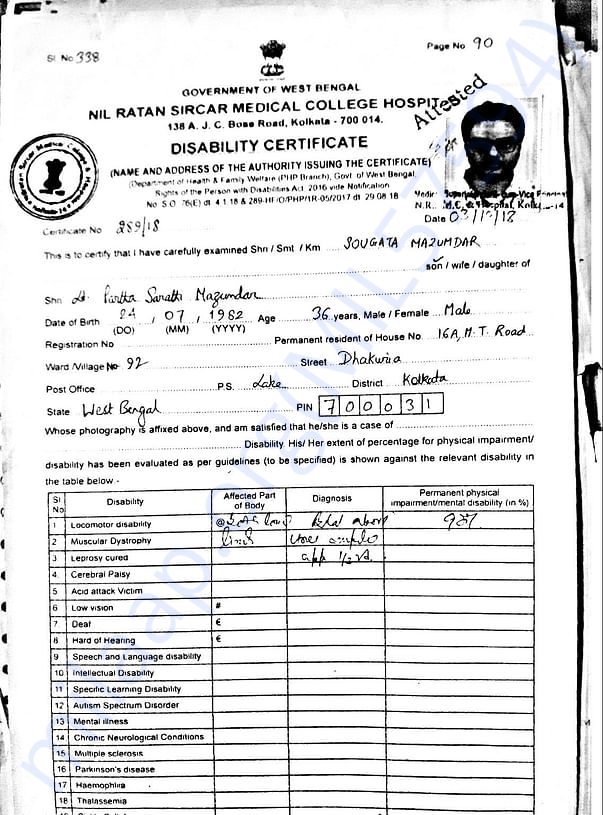 Page No 90
Sl. No 338
GOVERNMENT OF WEST BENGAL
NIL RATAN SIRCAR MEDICAL COLLEGE HOSPIT
Attested
138 A. J. C. Bose Road, Kolkata - 700 014.
DISABILITY CERTIFICATE
(NAME AND ADDRESS OF THE AUTHORITY ISSUING THE CERTIFICATE)
(Department of Health & Family Welfare (PHP Branch), Govt. of West Bengal,
Rights of the Person with Disabilities Act, 2016 vide Notification
No S.O. 76(E) dt 4.1.18 & 289-HF/O/PHP/1R-05/2017 dt 29.08.18
N.R. M.C. & Hospital, Kolkata-14
Date 03/12/18
Certificate No 289/18
This is to certify that I have carefully examined Shri / Smt / Km SOUGATA MAZUMDAR
son / wife / daughter of
Shri Lt. Partha Sarathi Mazumdar
Date of Birth 24 / 07 / 1982 Age 36 years, Male / Female Male
(DD) (MM) (YYYY)
Registration No Permanent resident of House No. 16A, M.T. Road
Ward /Village No 92 Street Dhakuria
Post Office P.S. Lake District Kolkata
State West Bengal PIN 700031
Whose photography is affixed above, and am satisfied that he/she is a case of
Disability. His/ Her extent of percentage for physical impairment/
disability has been evaluated as per guidelines (to be specified) is shown against the relevant disability in
the table below:-
Sl No Disability Affected Part of Body Diagnosis Permanent physical impairment/mental disability (in %)
1 Locomotor disability
2 Muscular Dystrophy limb
3 Leprosy cured
4. Cerebral Palsy
5 Acid attack Victim
6 Low vision #
7. Deaf €
8 Hard of Hearing €
9 Speech and Language disability
10 Intellectual Disability
11 Specific Learning Disability
12 Autism Spectrum Disorder
13 Mental illness
14 Chronic Neurological Conditions
15 Multiple sclerosis
16 Parkinson's disease
17 Haemophilia
18 Thalassemia